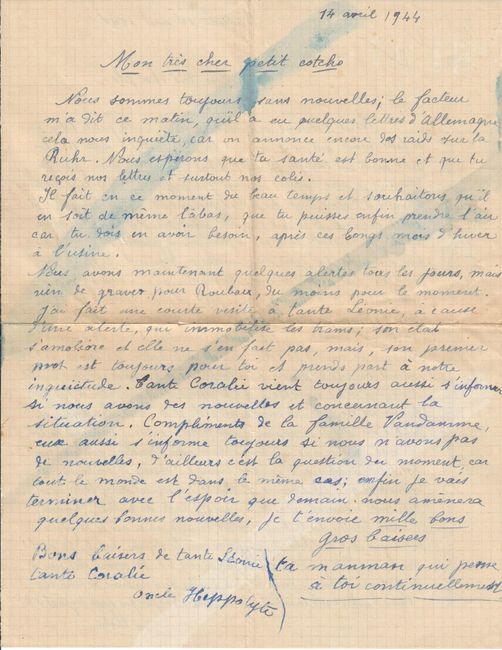 14 avril 1944
Mon très cher petit cotcho
Nous sommes toujours sans nouvelles; le facteur
m'a dit ce matin, qu'il a eu quelques lettres d'Allemagne
cela nous inquiète, car on annonce encore des raids sur la
Ruhr. Nous espérons que ta santé est bonne et que tu
reçois nos lettres et surtout nos colis.
Il fait en ce moment du beau temps et souhaitons qu'il
en soit de même làbas, que tu puisses enfin prendre l'air
car tu dois en avoir besoin, après ces longs mois d'hiver
à l'usine.
Nous avons maintenant quelques alertes tous les jours, mais
rien de graves pour Roubaix, du moins pour le moment.
J'ai fait une courte visite à tante Léonie, à cause
d'une alerte, qui immobilise les trams; son état
s'améliore et elle ne s'en fait pas, mais, son premier
mot est toujours pour toi et prends part à notre
inquiétude. Tante Coralie vient toujours aussi s'informer
si nous avons des nouvelles et concernant la
situation. Compliments de la famille Vandamme,
eux aussi s'informe toujours si nous n'avons pas
de nouvelles, d'ailleurs c'est la question du moment, car
tout le monde est dans le même cas; enfin je vais
terminer avec l'espoir que demain nous amènera
quelques bonnes nouvelles, je t'envoie mille bons
gros baisers
Bons baisers de tante Léonie
tante Coralie
Oncle Heppolyte
ta manman qui pense
à toi continuellement